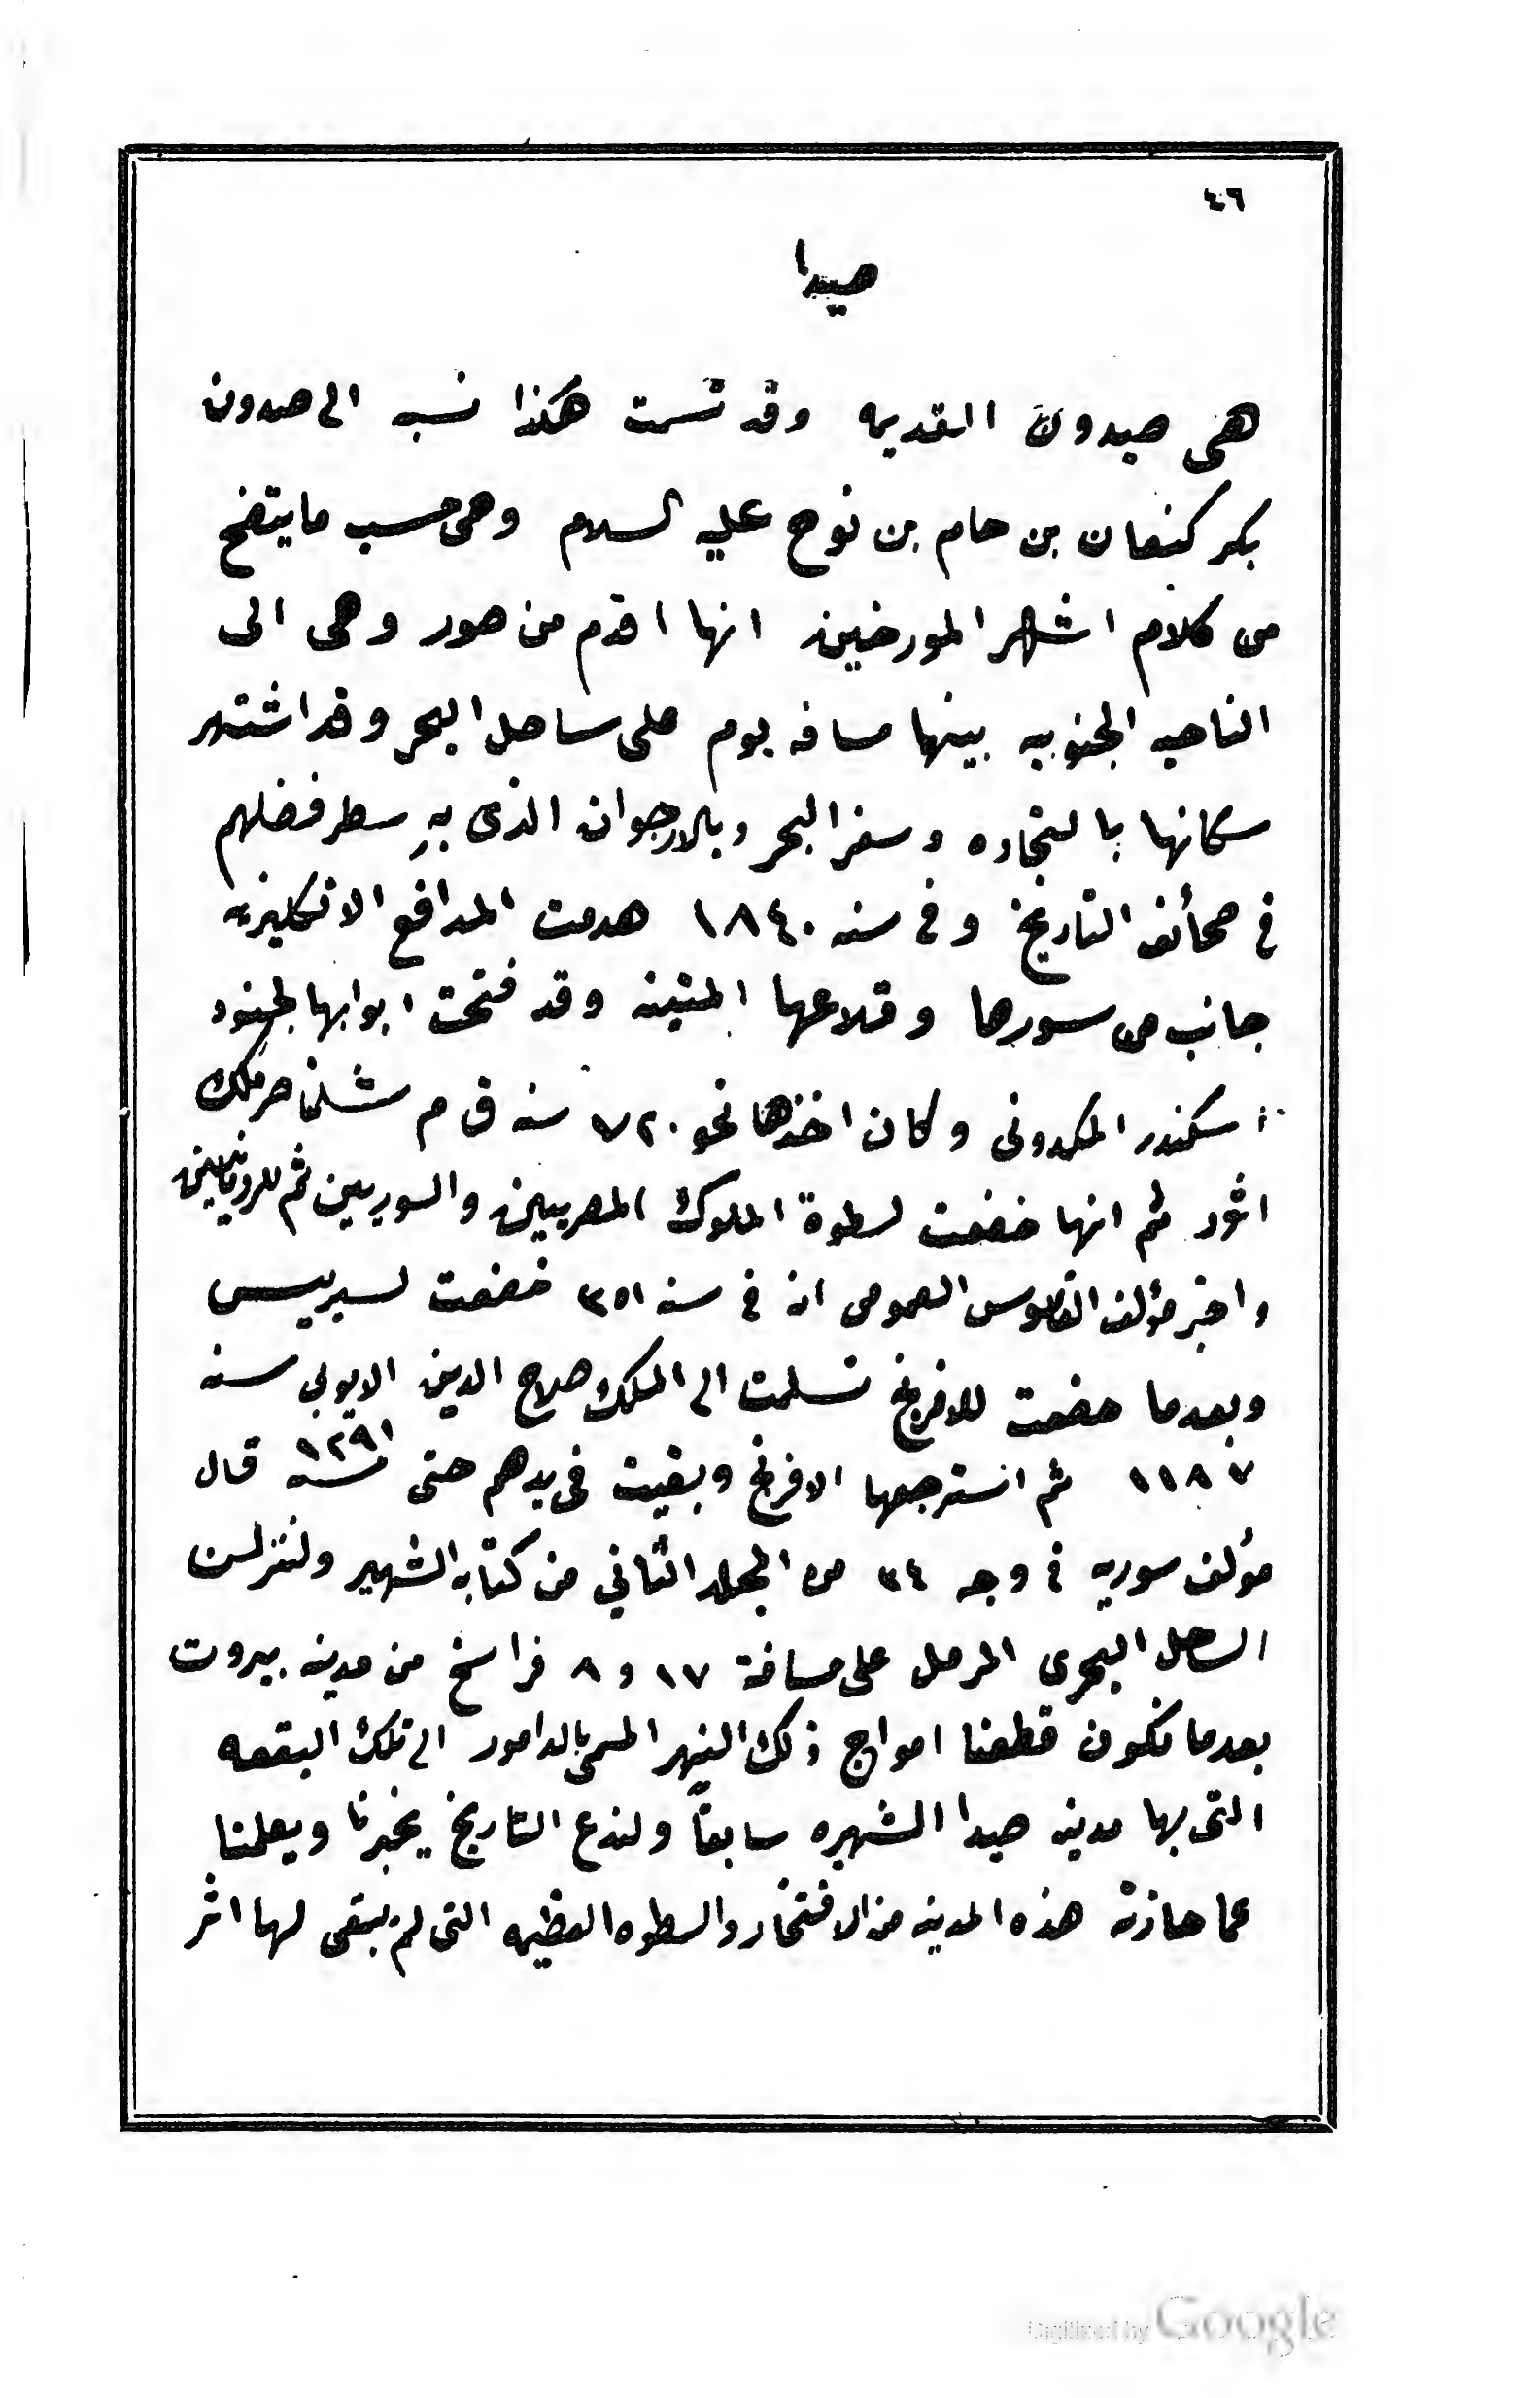 ٤٦
صيدا
هى صيدون القديمه وقد تسمت هكذا نسبه الى صيدون
بكر كنعان بن حام بن نوح عليه السلام وهى حسب ما يتضح
من كلام اشهر المورخين انها اقدم من صور وهى الى
الناحيه الجنوبيه بينها مسافه يوم على ساحل البحر وقد اشتهر
سكانها بالتجاره وسفر البحر وبالارجوان الذى بهِ سطر فضلهم
فى صحائف التاريخ وفى سنه ١٨٤٠ هدمت المدافع الانكليزيه
جانب من سورها وقلاعها المتينه وقد فتحت ابوابها لجنود
اسكندر المكدونى وكان اخذها نحو ٧٢٠ سنه ق م شلمناصر ملك
اثور ثم انها خضعت لسطوة الملوك المصريين والسوريين ثم للرومانيين
واخبر مؤلف القاموس العمومى انه فى سنه ٣٥١ خضعت لسيريس
وبعدما خضعت للافرنج تسلمت الى الملك صلاح الدين الايوبى سنه
١١٨٧ ثم استرجعها الافرنج وبقيت فى يدهم حتى سنه ١٢٩١ قال
مؤلف سوريه فى وجه ٢٤ من المجلد الثاني من كتابه الشهير ولننزلن
الساحل البحرى المرمل على مسافة ١٧ و ٨ فراسخ من مدينه بيروت
بعدما نكون قطعنا امواج ذلك النهر المسمى بالدامور الى تلك البقعه
التى بها مدينه صيدا الشهيره سابقاً ولندع التاريخ يخبرنا ويعلمنا
عما حازته هذه المدينه من الافتخار والسطوه العظيمه التى لم يبقى لها اثر
Digitized by Google